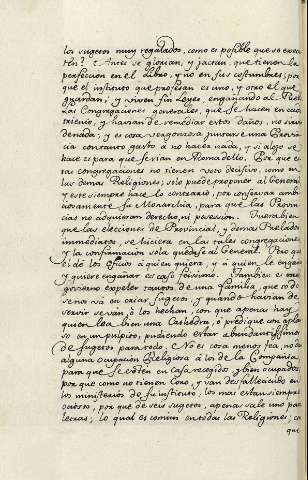 los sugetos muy regalados, como es posible que se execu
ten? Antes se glorian, y jactan, que tienen la
perfeccion en el Libro, y no en sus costumbres; por
que el instituto que profesan es uno, y otro el que
guardan; y viven sin Leyes, engañando al Pue
Las Congregaciones generales, que se hacen en cada
trienio, y havian de remediar estos daños, no sirven
de nada; y es cosa vergonzosa juntarse una Provin
cia con tanto gasto a no hacer nada, y si algo se
hace es para que se rian en Roma dello. Por que es
tas congregaciones no tienen voto decisivo, como en
las demas Religiones; solo puede proponer al General
y este siempre hace lo contrario, por conservar am
biciosamente su Monarchia, para que las Provin
cias no adquieran derecho, ni posesion. Fuera bien
que las elecciones de Provincial, y demas Prelados
immediatos, se hiciera en las tales congregaciones
y la confirmacion sola quedase al General. Pero que
el de los oficios a quien quiera, y a quien le engañe
y quiere engañar es caso feisimo. Tambien es mal
govierno expeler tantos de una familia, que no de
se no vá en criar sugetos, y quando havian de
servir se van, ó los hechan, con que apenas hay
quien lea bien una Cathedra, ó predique con aplau
so en un pulpito, pudiendo estar abundantissimos
de sugetos para todo. No es cosa menos fea, no dar
alguna ocupacion Religiosa á los de la Compañia,
para que se estén en casa recogidos y bien ocupados,
por que como no tienen Coro, y van desfalleciendo en
los ministerios de su instituto, los mas están siempre
ociosos, por que de seis sugetos, apenas sale uno para
letras, lo qual es comun en todas las Religiones; ca
que